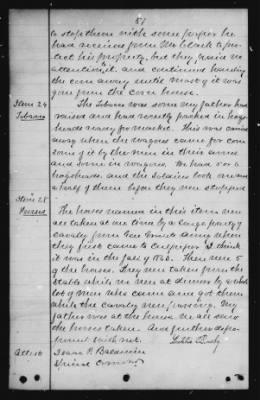 57
to stop them with some paper he
had received from Mr Clark to pro-
tect his property, but they paid no
attention to it, and continued hauling
the corn away until most of it was
gone from the corn house.
Item 24
Tobacco
The tobacco was some my father had
raised and had recently packed in hogs-
heads ready for market. This was carried
away when the wagons came for corn
some of it by the men in their arms
and some in wagons. We had
hogsheads, and the soldiers took
a half of them before they were stopped
Item 28
Horses
The horses named in this item
all taken at one time by a large party of
cavalry from Gen Grants army when
they first came to Culpeper I think
it was in the fall of 1863. There were 5
of the horses. They were taken from the
stable while we were at dinner by a whole
lot of men who came and got them
while the cavalry were passing. My
father was at the house. We all saw
the horses taken. And further depo-
nent saith not.
Attest
Isaac P. Baldwin
Special Comr